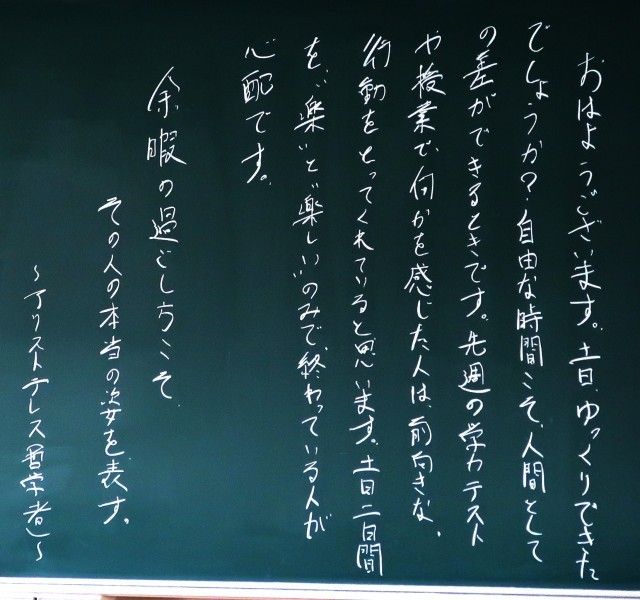 おはようございます。土日、ゆっくりできた
でしょうか?自由な時間こそ、人間として
の差ができるときです。先週の学力テスト
や授業で、何かを感じた人は、前向きな、
行動をとってくれていると思います。土日二日間
を、"楽"と"楽しい"のみで、終わっている人が
心配です。
余暇の過ごし方こそ、
その人の本当の姿を表す。
~アリストテレス(哲学者)~